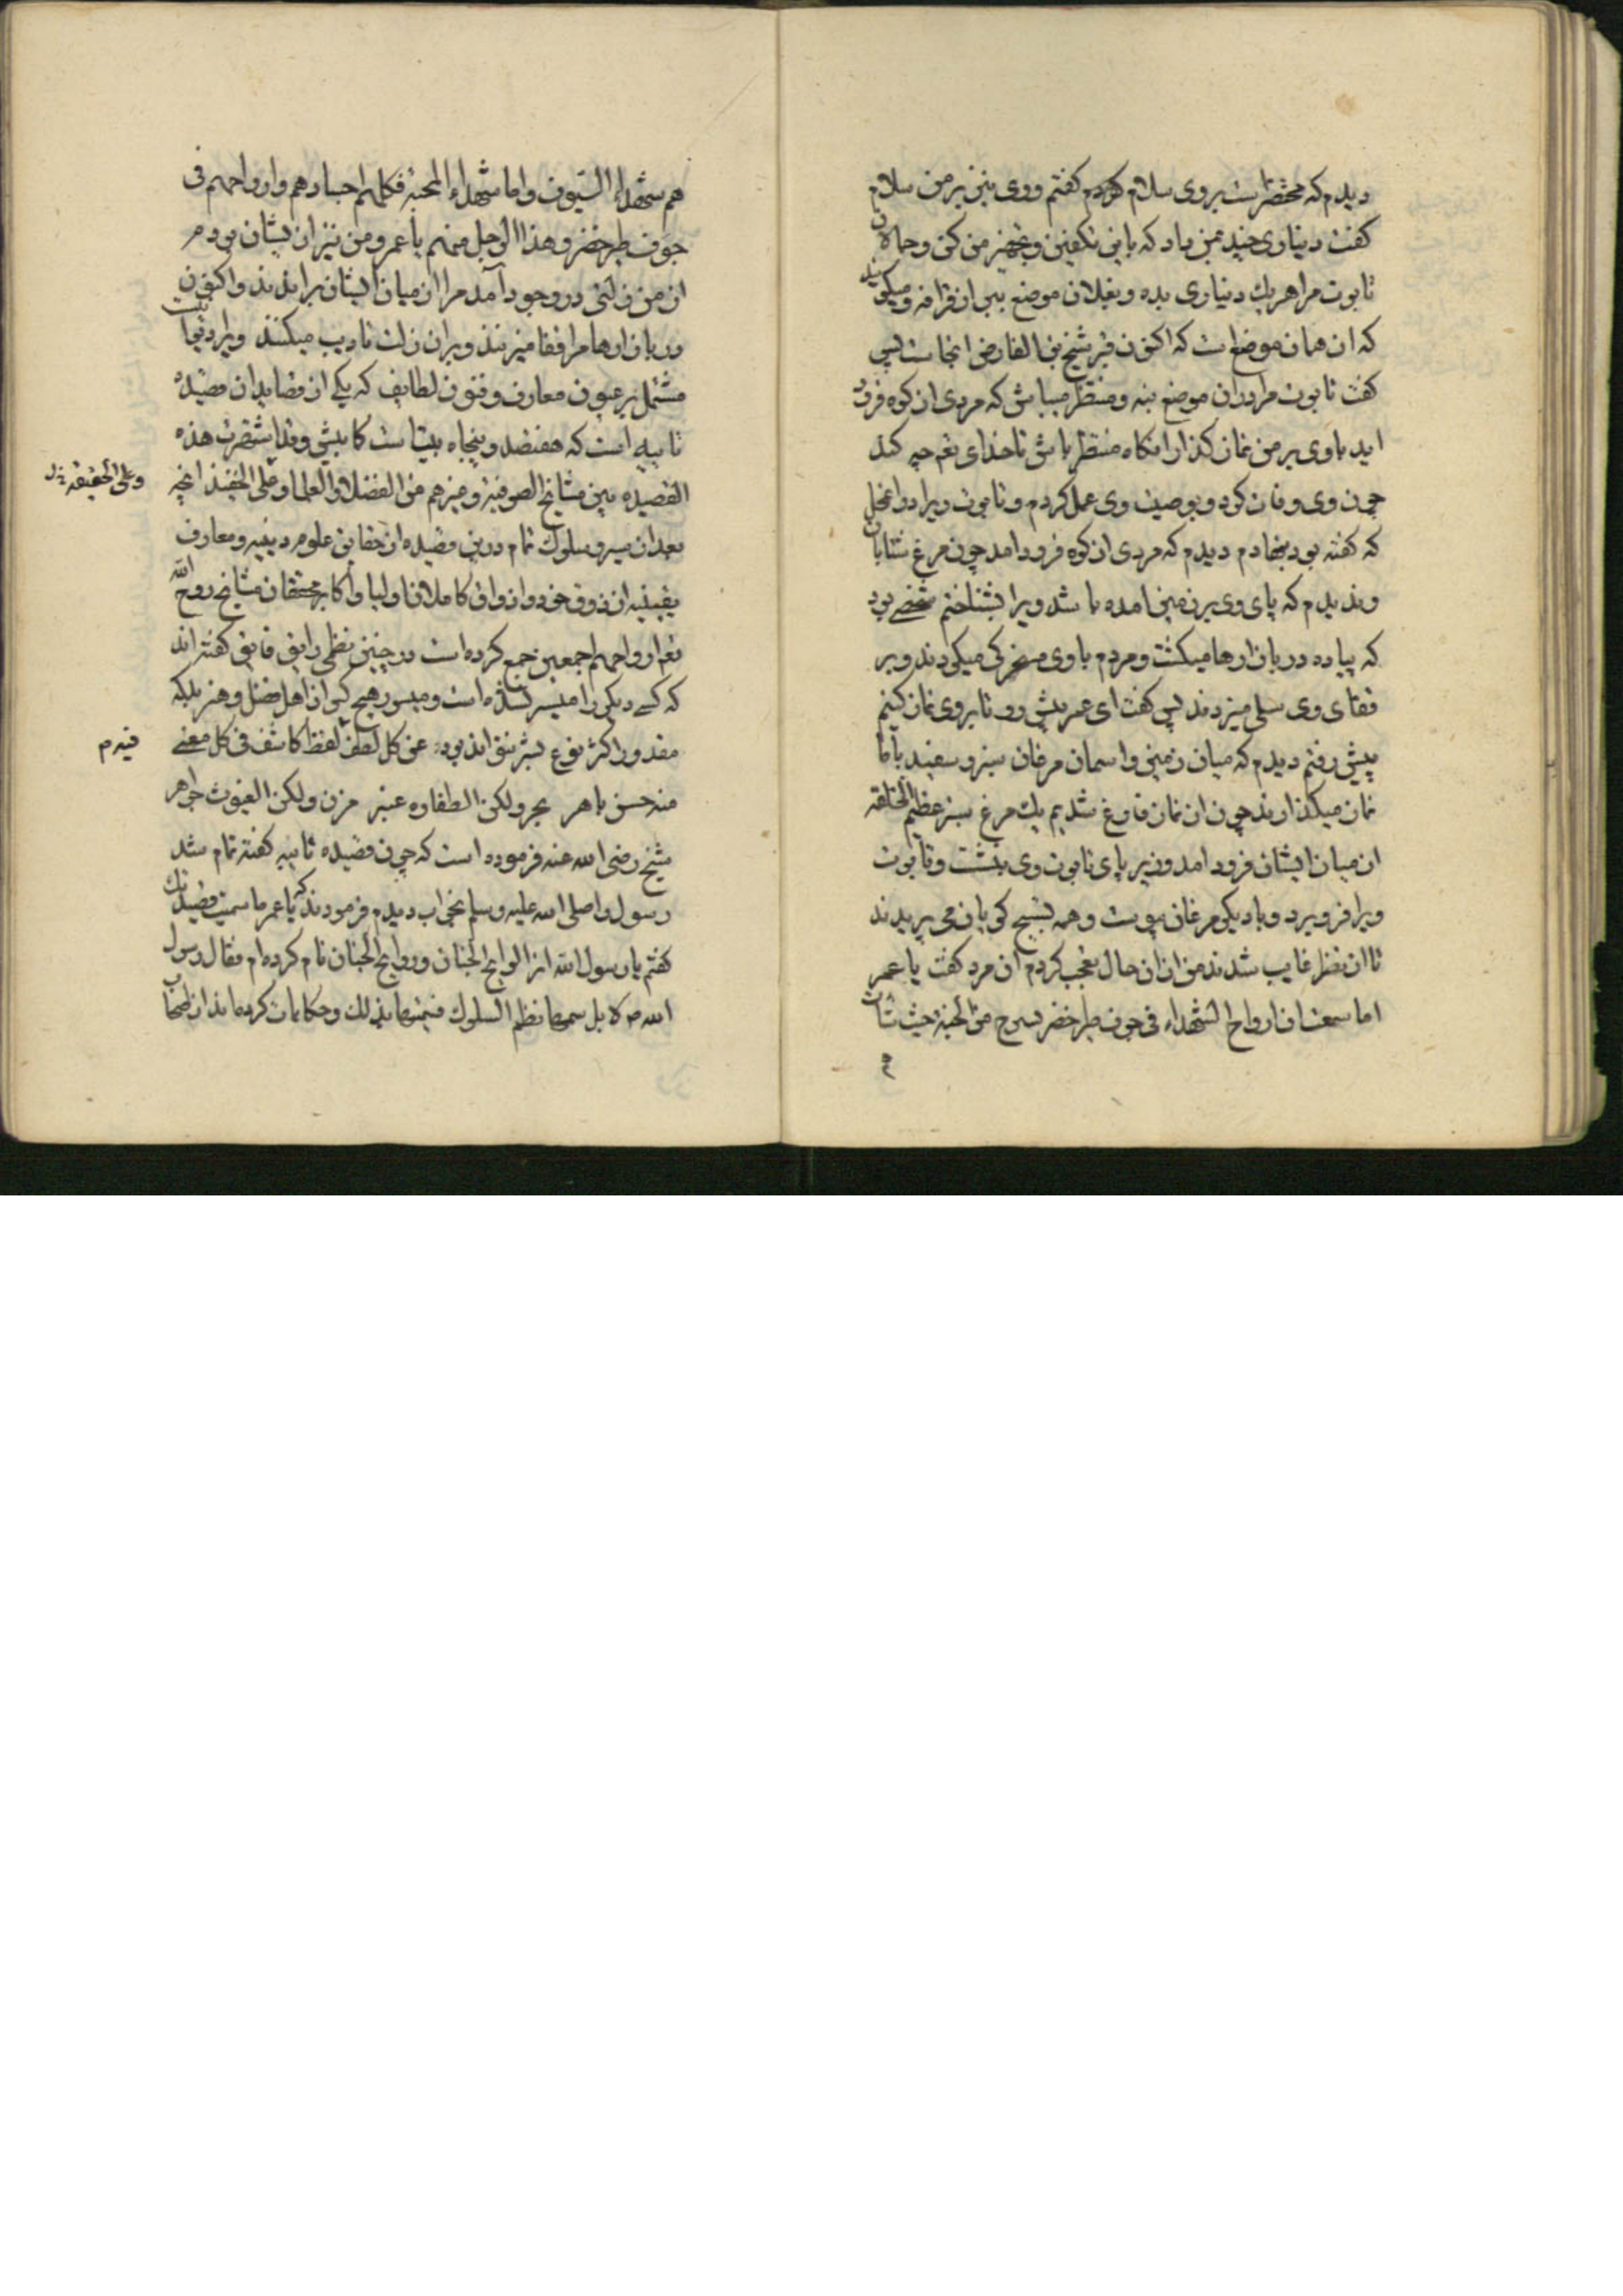 دیدم که محتضر است بروی سلام کردم کفتم ووی نیز بر من سلام
کفت دیناری چند بمن داد که باین تکفین وتجهیز من کن وحمالان
تابوت مرا هر یک دیناری بده وبفلان موضع ببر از قرافه ومیکویند
که ان همان موضع است که اکنون قبر شیخ بن الفارض انجاست پس
کفت تابوت مرا دران موضع بنه ومنتظر میباش که مردی از کوه فرود
اید باوی بر من نماز کذار انکاه منتظر باش تا خدای تعم چه کند
چون وی وفات کرد وبوصیت وی عمل کردم وتابوت ویرا دوانجا
که کفته بود بنهادم دیدم که مردی از کوه فرود امد چون مرغ شتابان
وندیدم که پای وی بر زمین امده باشد ویرا بشناختم شخصی بود
که پیاده در بازارها میکشت ومردم باوی مسخرکی میکردند وبر
قفای وی سیلی میزدند پس کفت ای عمر پیش رو تا بروی نماز کنیم
پیش رفتم دیدم که میان زمین واسمان مرغان سبز وسفید باما
نماز میکذارند چون از نماز فارغ شدیم یک مرغ سبز عظیم الخلقه
از میان ایشان فرود امد وزیر پای تابوت وی بنشست وتابوت
ویرا فرو برد وبا دیکر مرغان پیوست وهمه تسبیح کویان می پریدند
تا از نظر غایب شدند من از ان حال تعجب کردم ان مرد کفت یا عمر
اما سمعت ان ارواح الشهداء فی جوف طیر خضر تسرح من الجنة حیث شاءت
هم شهداء السیوف واما شهداء المحبة فکلهم اجسادهم وارواحهم فی
جوف طیر خضر وهذا الرجل منهم یا عمر ومن نیز از یشان بودم
از من زلتی در وجود آمد مرا از میان ایشان براندند واکنون
در بازارها مرا قفا میزنند وبران زلت تادیب میکنند ویرا دیوانیست
مشتمل بر عیون معارف وفنون لطایف که یکی از قصاید ان قصیده
تاییه است که هفتصد وپنجاه بیتاست کما بیش وقد اشتهرت هذه
القصیده بین مشایخ الصوفیة وغیرهم من الفضلا والعلما وعلی الحقیقة انچه
وعلی الحقیقة
بعد از سیر وسلوک تمام درین قصیده از حقایق علوم دینیه ومعارف
یقینیه از ذوق خود واذواق کاملان اولیا واکابر محققان مشایخ روح الله
تعم ارواحهم اجمعین جمع کرده است در چنین نظمی رایق فایق کفته اند
که کسی دیکر را میسر نشده است ومیسور هیچ کس از اهل فضل وهنر بلکه
مقدور اکثر نوع بشر نتواند بود عن کل لطف لفظ کاشف فی کل معنی
فیه م
منه حسن باهر بحر ولکن الطفاوه عنبر مزن ولکن الغیوث جواهر
شیخ رضی الله عنه فرموده است که چون قصیده تاییه کفته تمام شد
رسول را صلی الله علیه وسلم بخواب دیدم فرمودند که یا عمر ما سمیت قصیدتک
کفتم یا رسول الله انرا لوایح الجنان وروایح الجنان نام کرده ام فقال رسول
الله ص لا بل سمها نظم السلوک فسمیتها بذلک وحکایات کرده اند از اصحاب